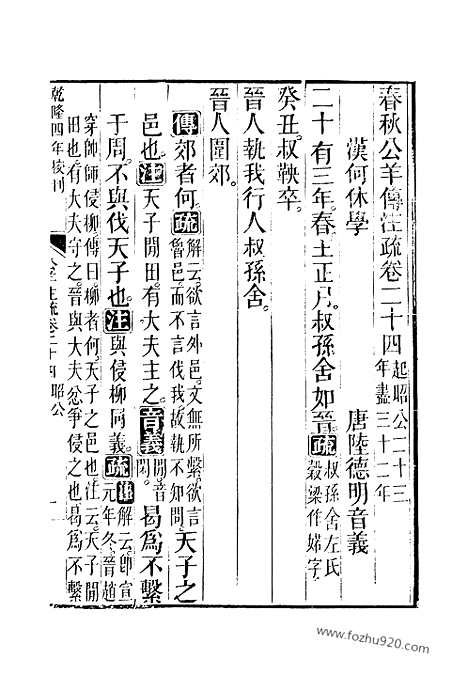 春秋公羊傳注疏卷二十四起昭公二十三
年盡三十二年
漢何休學　唐陸德明音義
二十有三年春王正月叔孫舍如晉。疏叔孫舍左氏
穀梁作婼字
癸丑。叔鞅卒。
晉人執我行人叔孫舍。
晉人圍郊。
傳郊者何。疏解云欲言外邑。文無所繫。欲言
魯邑。而不言伐我。故執不知問。天子之
邑也。注天子閒田。有大夫主之。音義閒音
閑。曷爲不繫
于周。不與伐天子也。注與侵柳同義。疏注解云。即宣
元年冬。晉趙
穿帥師侵柳。傳曰。柳者何。天子之邑也。注云。天子閒
田也。有大夫守之。晉與大夫忿爭侵之也。曷爲不繫
乾隆四年校刊
公羊注疏卷二十四　昭公　一
www.fozhu920.com